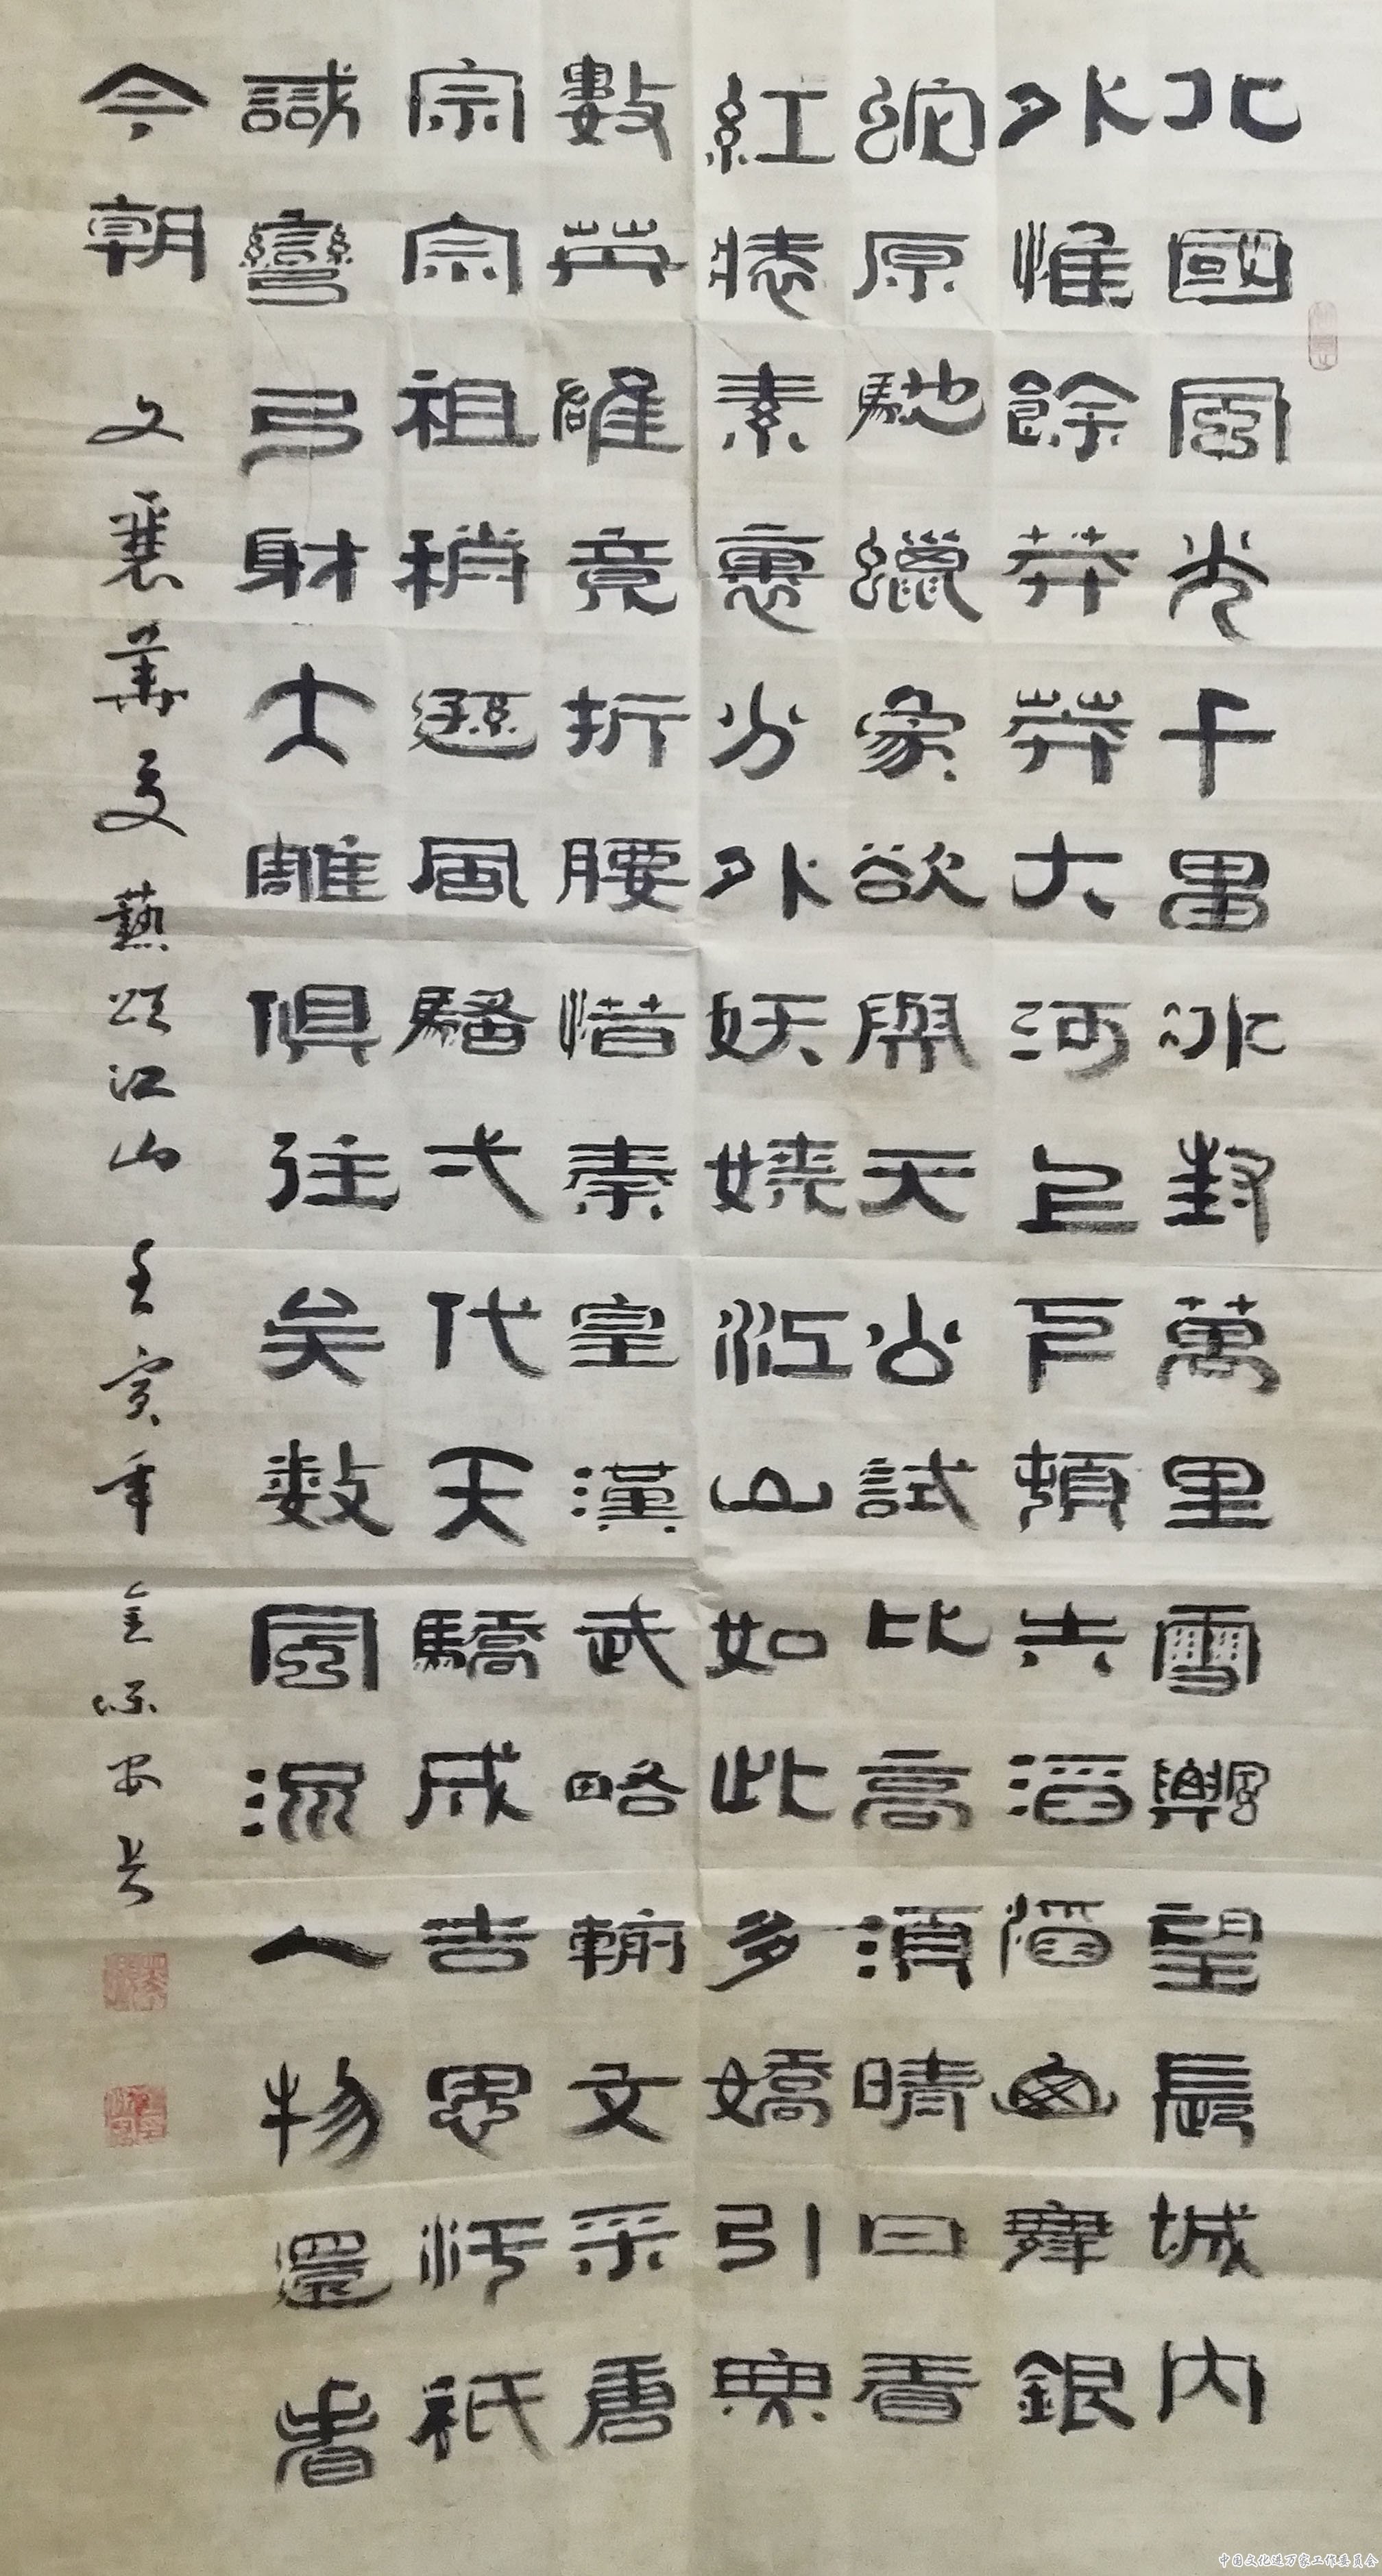 北國風光千里冰封萬里雪飄望長城內
外惟餘莽莽大河上下頓失滔滔山舞銀
蛇原馳蠟象欲與天公試比高須晴日看
紅裝素裹分外妖嬈江山如此多嬌引無
數英雄竟折腰惜秦皇漢武略輸文采唐
宗宗祖稍遜風騷弌代天驕成吉思汗祇
識彎弓射大雕俱往矣數風流人物還看
今朝 文襄華夏藝頌江山 壬寅年 安書
中国文化进万家工作委员会